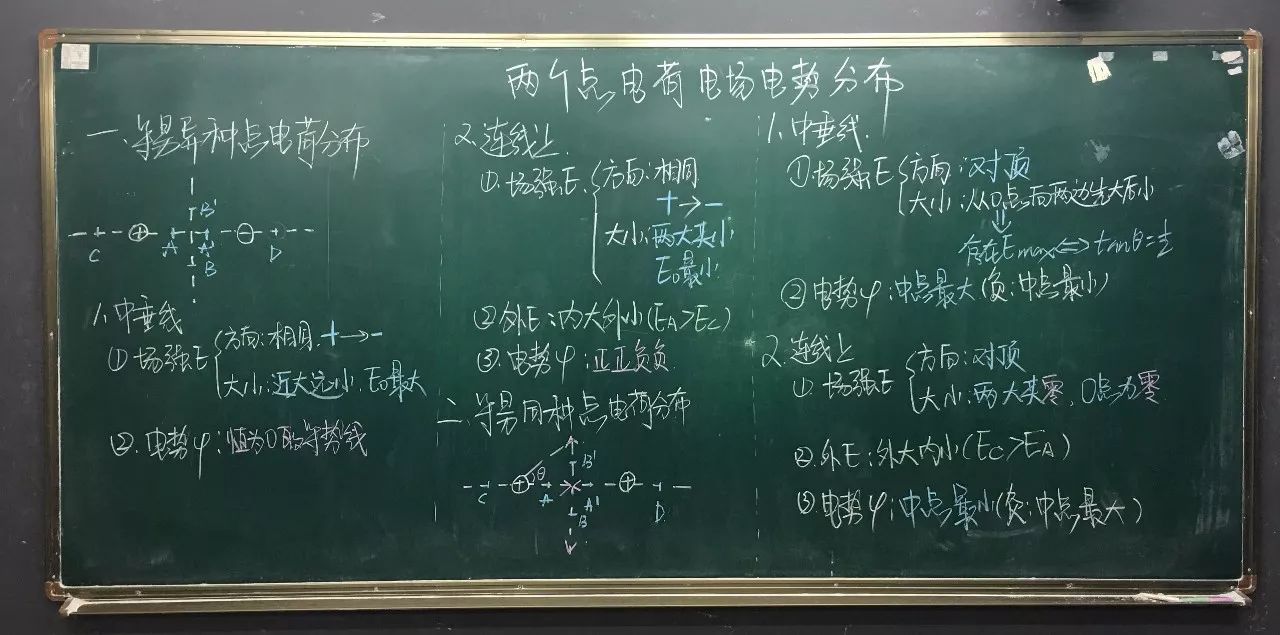 两个点电荷电场电势分布
一、等量异种点电荷分布
C + A A' B' B − D
1. 中垂线
① 场强E
方向:相同 + → −
大小:近大远小, E₀最大
② 电势φ:恒为0的等势线
2. 连线上
① 场强E
方向:相同
+ → −
大小:两大夹小
E₀最小
② 外E:内大外小(E_A>E_C)
③ 电势φ:正正负负
二、等量同种点电荷分布
C + θ A A' B' B + D
1. 中垂线
① 场强E
方向:对顶
大小:从O点向两边先大后小
⇓
存在E max ⇔ tanθ=
② 电势φ:中点最大(负:中点最小)
2. 连线上
① 场强E
方向:对顶
大小:两大夹零, O点为零
② 外E:外大内小(E_C>E_A)
③ 电势φ:中点最小(负:中点最大)